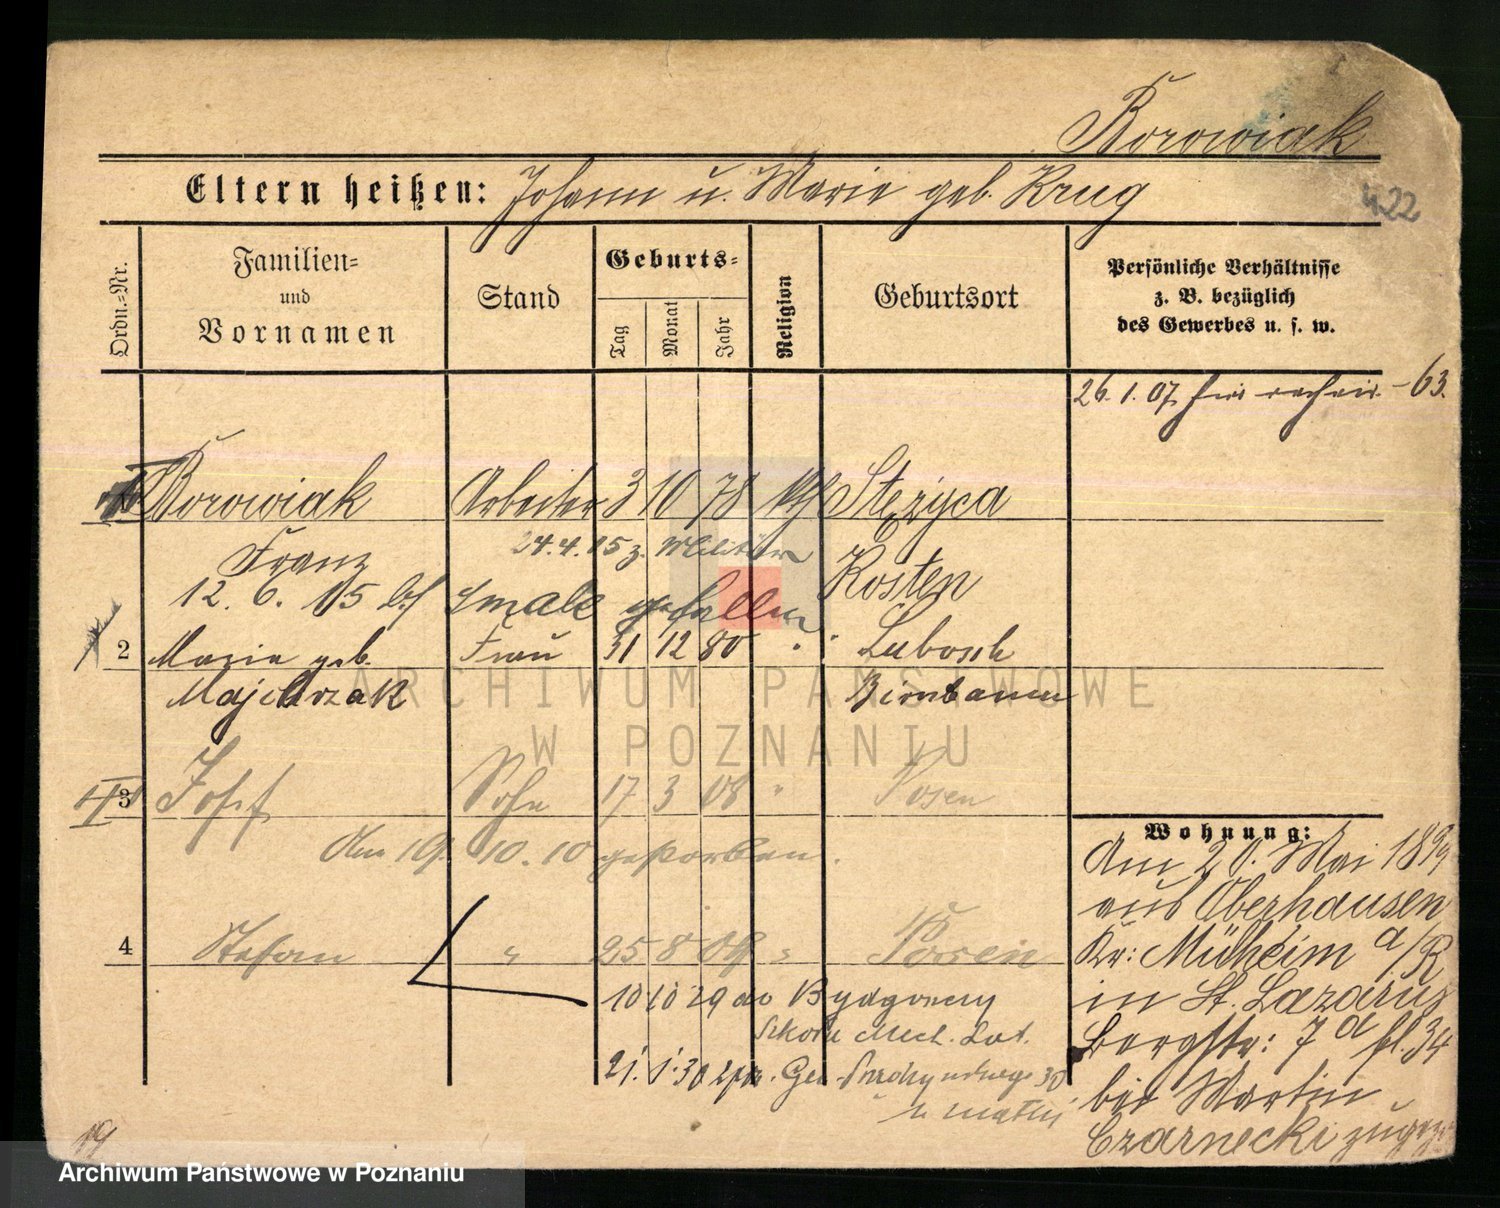 Borowiak
422
Eltern heißen: Johann u. Marie geb. Krug
Ordn.=Nr.
Familien=
und
Vornamen
Stand
Geburts=
Tag
Monat
Jahr
Religion
Geburtsort
Persönliche Verhältnisse
z. B. bezüglich
des Gewerbes u. s. w.
26.1.07 63.
Borowiak Arbeiter 3 10 78 kth Stęzyca
Franz 24.4.15 z. Militär Kosten
12.6.15 gefallen
2 Maria geb. Frau 31 12 80 " Lubosch
Majchrzak Birnbaum
ARCHIWUM PAŃSTWOWE
W POZNANIU
3 Josef Sohn 17 3 08 " Posen
Am 19.10.10 gestorben.
Wohnung:
Am 20. Mai 1899
aus Oberhausen
4 Stefan " 25 8 09 " Posen
Kr: Mülheim a/R
10 10 29 do Bydgoszczy
in St. Lazarus
Szkoła Mech. Lot.
Bergstr: 7 d fl. 34
21.1.30 z Gen. Prądzyńskiego 30
bei Martin
u matki
Czarnecki zugez.
19
Archiwum Państwowe w Poznaniu